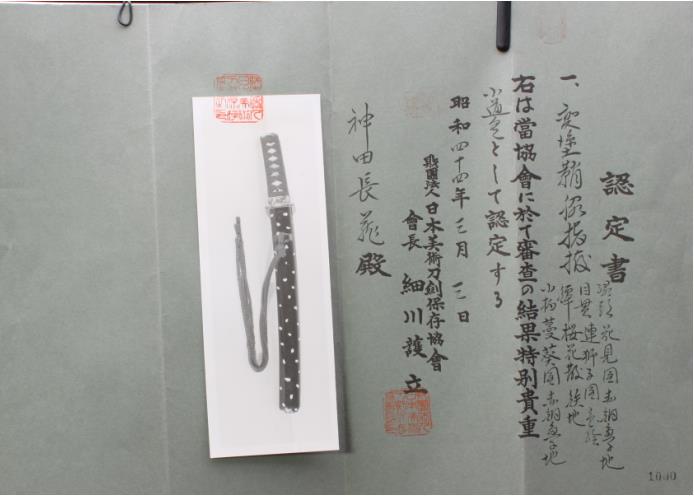 認定書
一、変塗鞘脇指拵
縁頭 花見図赤銅魚子地
目貫 連獅子図
鐔 桜花散鉄地
小柄 蔓葵図赤銅魚子地
右は當協會に於て審査の結果特別貴重
小道具として認定する
昭和四十四年三月三日
財團法人日本美術刀劍保存協會
會長 細川護立
神田長 殿
1000